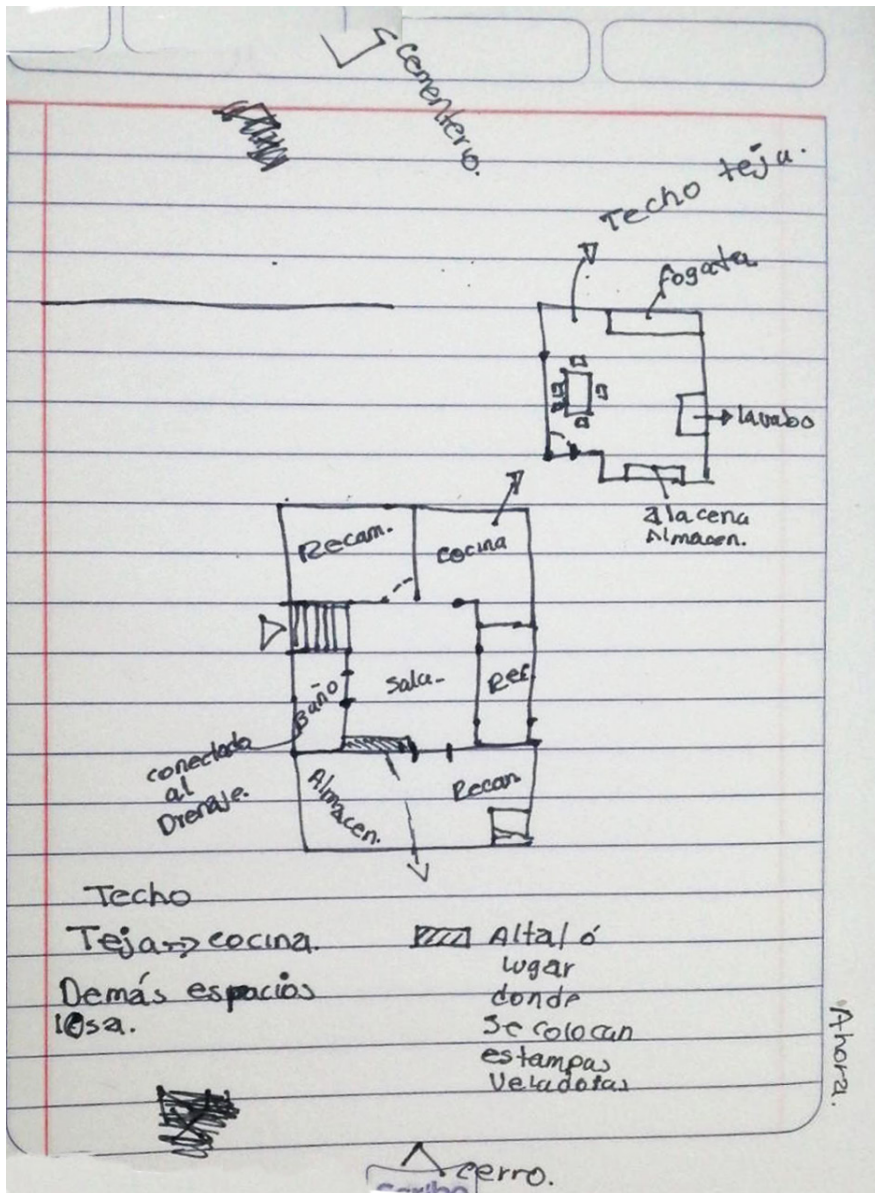 cementerio.
Techo teja.
fogata
lavabo
alacena
Almacen.
Recam.
cocina
Sala-
Ref
Baño
conectado
al
Drenaje.
Almacen.
Recam
Techo
Teja => cocina.
Demás espacios
losa.
Altal ó
lugar
donde
Se colocan
estampas
Veladoras
Ahora.
cerro.